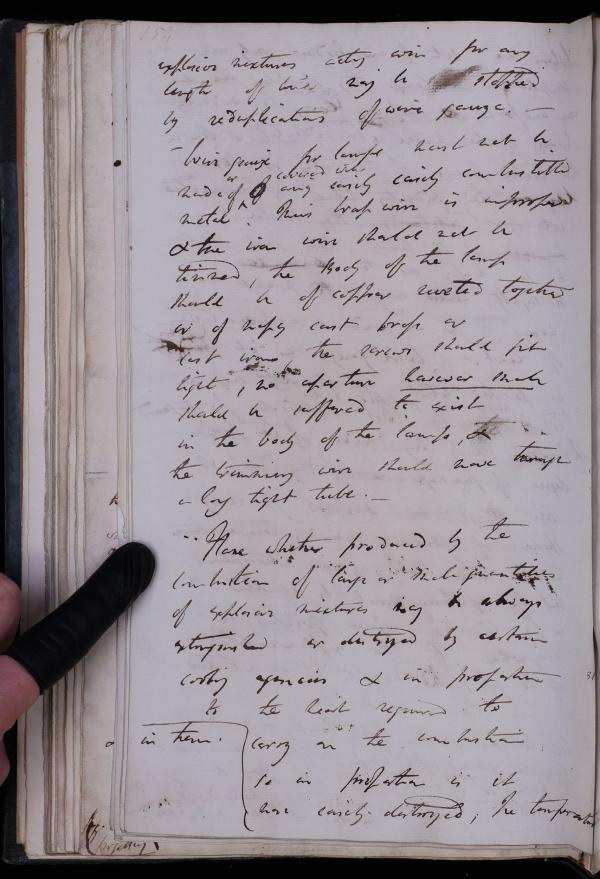 154
explosive mixtures acting over for any
length of time may be stopped
by reduplications of wire gauze. —
— Wire gauze for lamps must not be
made of or covered with any easily easily combustible
metal. Thus brass wire is improper
& the iron wire should not be
tinned, the Body of the lamp
should be of copper riveted together
or of massy cast brass or
cast iron, the screws should fit
tight, no aperture however small
should be suffered to exist
in the body of the lamp, &
the trimming wire should move through
a long tight tube. —
Flame whether produced by the
combustion of large or small quantities
of explosive mixtures may be always
extinguished or destroyed by certain
cooling agencies & in proportion
to the heat required to
in them.
carry on the combustion
so in proportion is it
more easily destroyed; the temperature